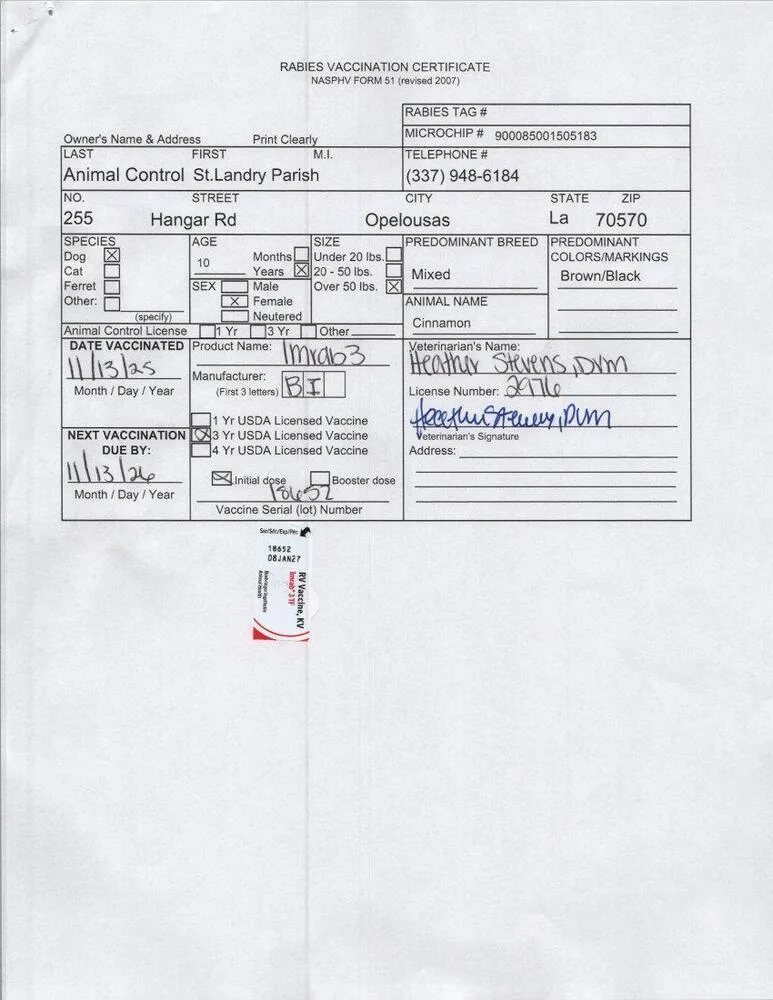 RABIES VACCINATION CERTIFICATE
NASPHV FORM 51 (revised 2007)
RABIES TAG #
Owner's Name & Address Print Clearly
MICROCHIP # 900085001505183
LAST FIRST M.I.
TELEPHONE #
Animal Control St.Landry Parish
(337) 948-6184
NO. STREET CITY STATE ZIP
255 Hangar Rd Opelousas La 70570
SPECIES
Dog
Cat
Ferret
Other:
(specify)
AGE
10
Months
Years
SEX
Male
Female
Neutered
SIZE
Under 20 lbs.
20 - 50 lbs.
Over 50 lbs.
PREDOMINANT BREED
Mixed
PREDOMINANT
COLORS/MARKINGS
Brown/Black
ANIMAL NAME
Cinnamon
Animal Control License 1 Yr 3 Yr Other
DATE VACCINATED
11/13/25
Month / Day / Year
NEXT VACCINATION
DUE BY:
11/13/26
Month / Day / Year
Product Name: Imrab3
Manufacturer:
(First 3 letters) BI
1 Yr USDA Licensed Vaccine
3 Yr USDA Licensed Vaccine
4 Yr USDA Licensed Vaccine
Initial dose Booster dose
18652
Vaccine Serial (lot) Number
Veterinarian's Name:
Heather Stevens, DVM
License Number: 2976
Heather Stevens, DVM
Veterinarian's Signature
Address:
18652
08JAN27
RV Vaccine, KV
Imrab® 3 TF
Boehringer Ingelheim
Animal Health